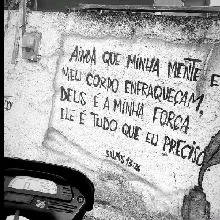 AINDA QUE MINHA MENTE E
MEU CORPO ENFRAQUEÇAM,
DEUS É A MINHA FORÇA
ELE É TUDO QUE EU PRECISO
SALMO 73:26